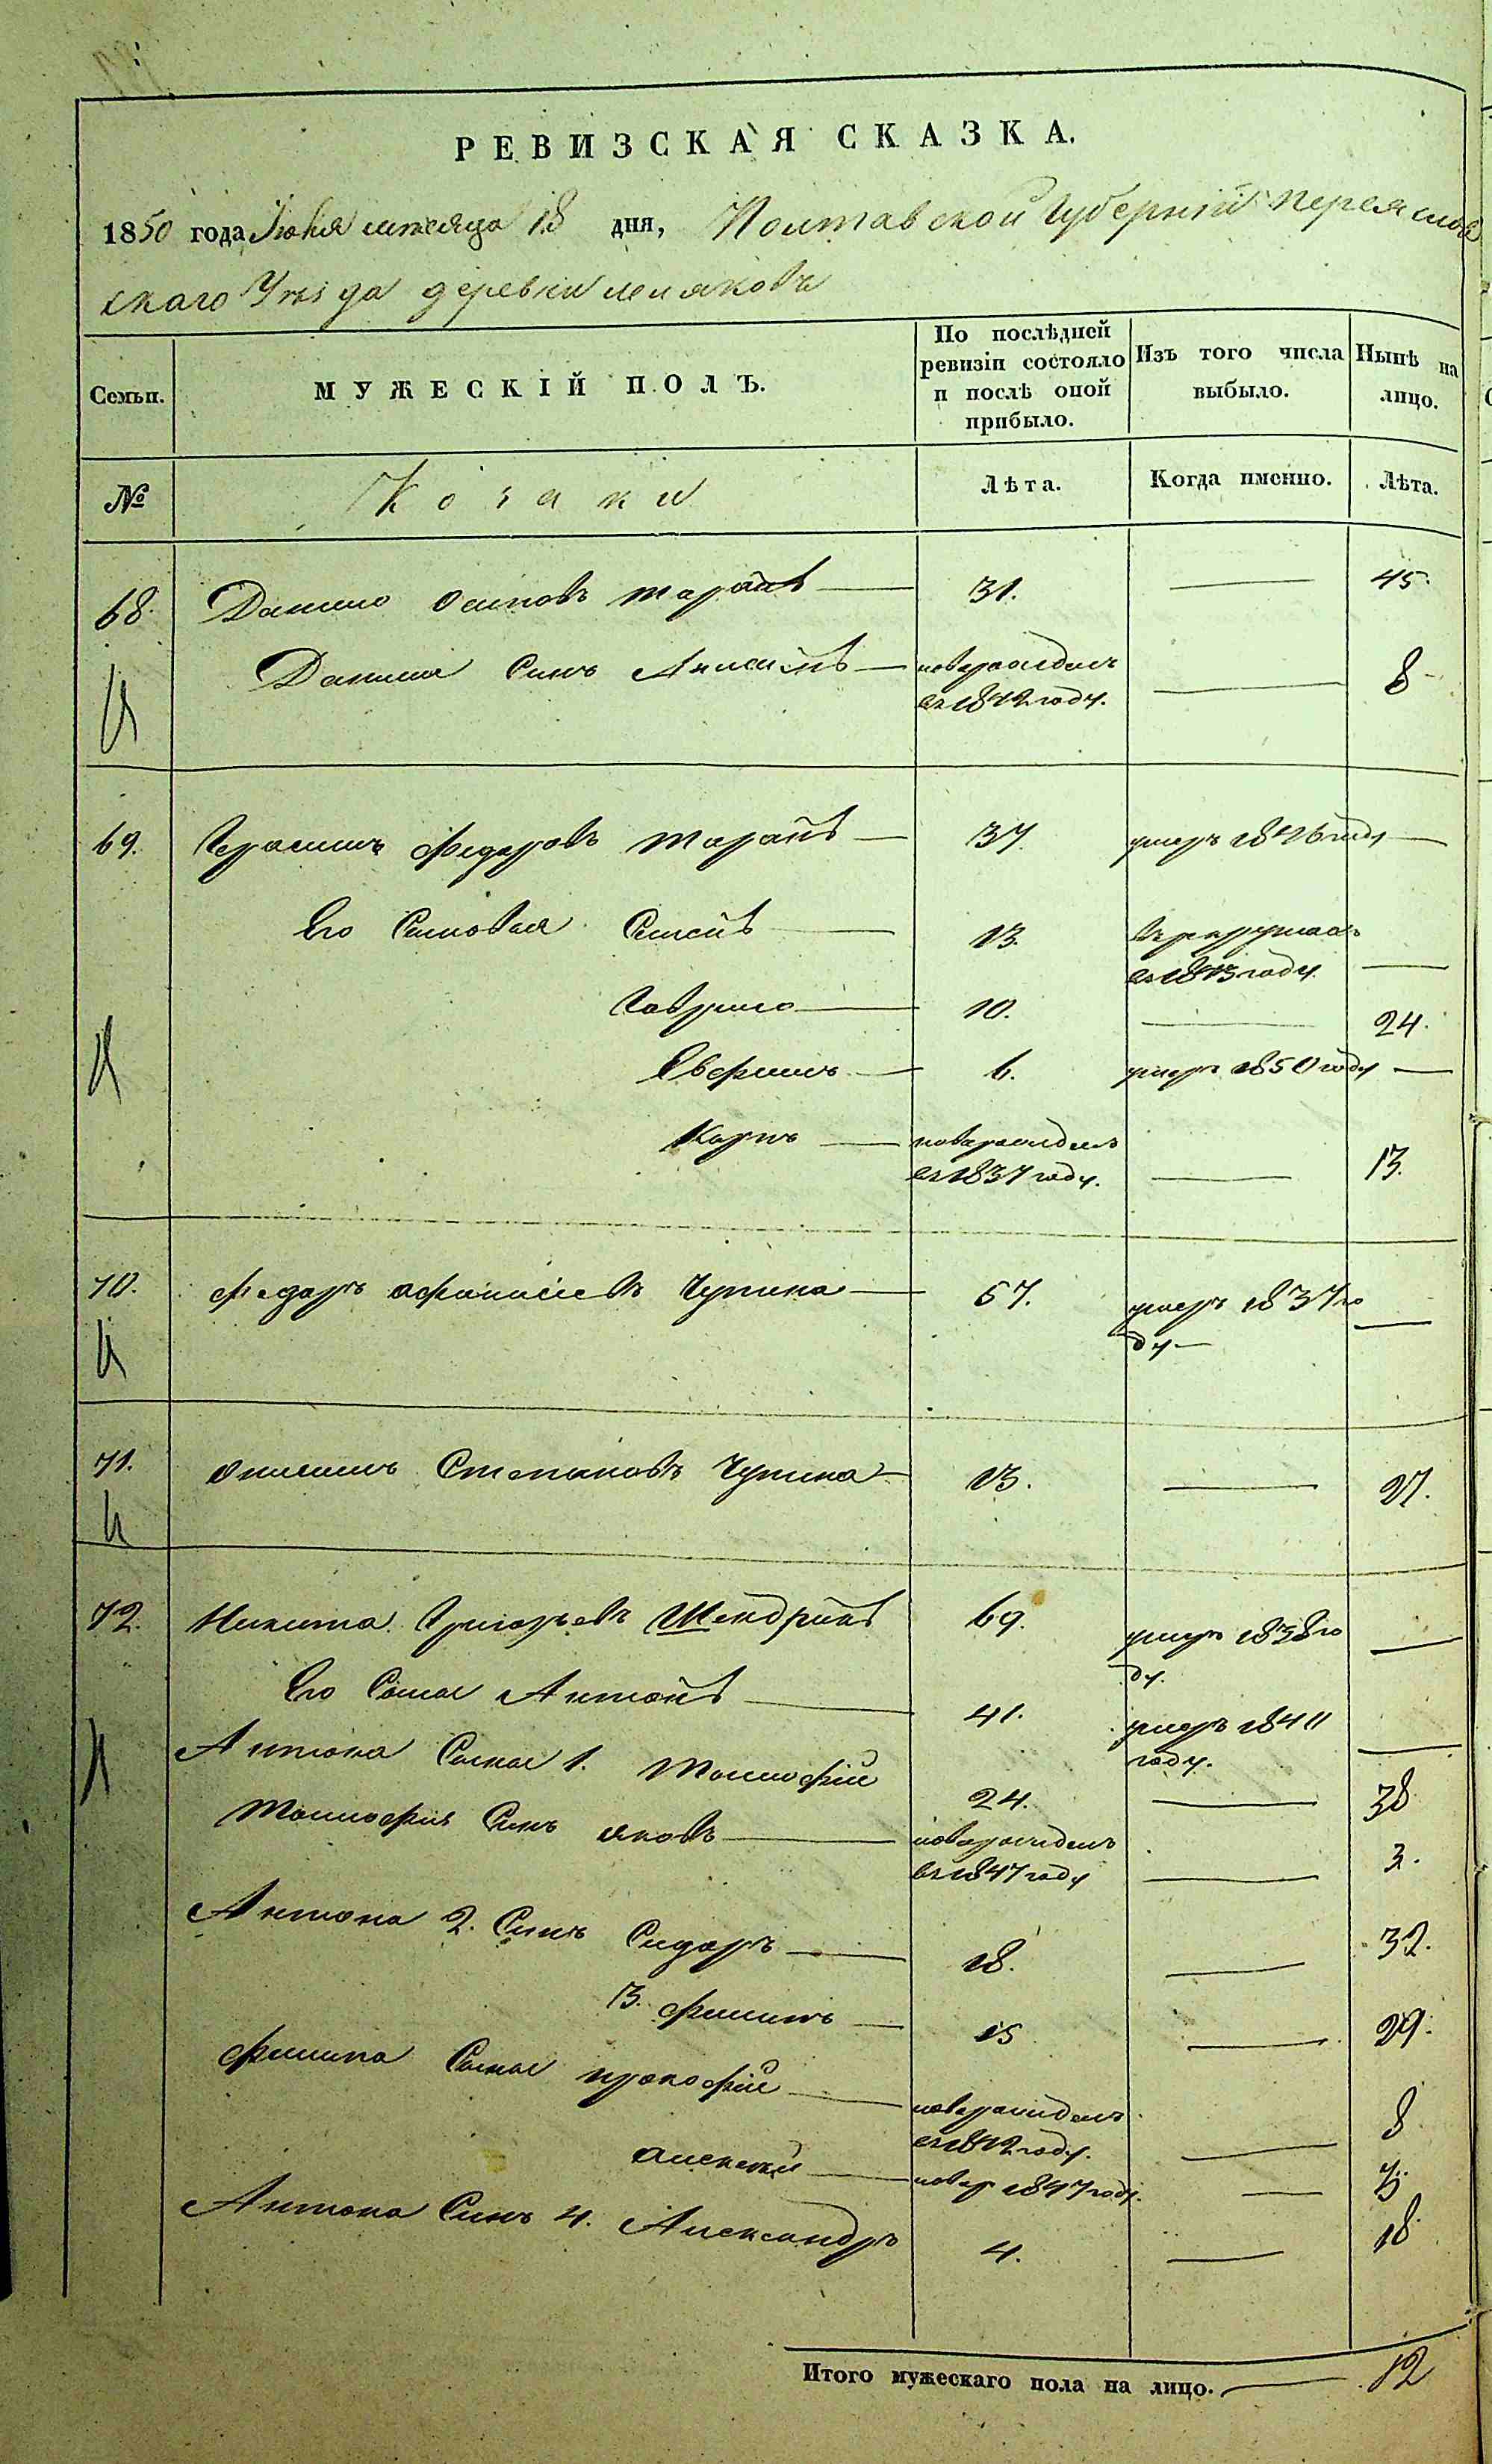 РЕВИЗСКАЯ СКАЗКА.
1850 года Июня месяца 18 дня, Полтавской Губернии Переяслов
скаго Уѣзда деревни
Семьи. МУЖЕСКІЙ ПОЛЪ. По послѣдней ревизіи состояло и послѣ оной прибыло. Изъ того числа выбыло. Нынѣ на лицо.
№ Козаки Лѣта. Когда именно. Лѣта.
68. Данило Осиповъ Таранъ — 31. — 45.
Данила Синъ Анисимъ — новорожденъ — 8
въ 1842 году.
69. Герасимъ Федоровъ Таранъ — 37. умеръ 1846 году —
Его Синовья Семенъ — 13. въ рекруты
въ 1843 году. —
Гаврило — 10. — 24.
Евфимъ — 6. умеръ 1850 году —
Карпъ — новорожденъ — 13.
въ 1837 году.
70. Федоръ Афанасіевъ Чупика — 57. умеръ 1837 го
ду — —
71. Онисимъ Степановъ Чупика — 13. — 27.
72. Никита Григорьевъ Шендрикъ 69. умеръ 1838 го
ду. —
Его Сыны Антонъ — 41. умеръ 1841
году. —
Антона Сыны 1. Тимофій 24. — 38
Тимофія Синъ Яковъ — новорожденъ — 3.
въ 1847 году
Антона 2. Синъ Сидоръ — 18. — 32.
3. Филипъ — 15 — 29.
Филипа Сыны Прокофій — новорожденъ — 8
въ 1842 году.
Алексей — новор 1847 году. — 3.
Антона Синъ 4. Александръ 4. — 18
Итого мужескаго пола на лицо. — 12